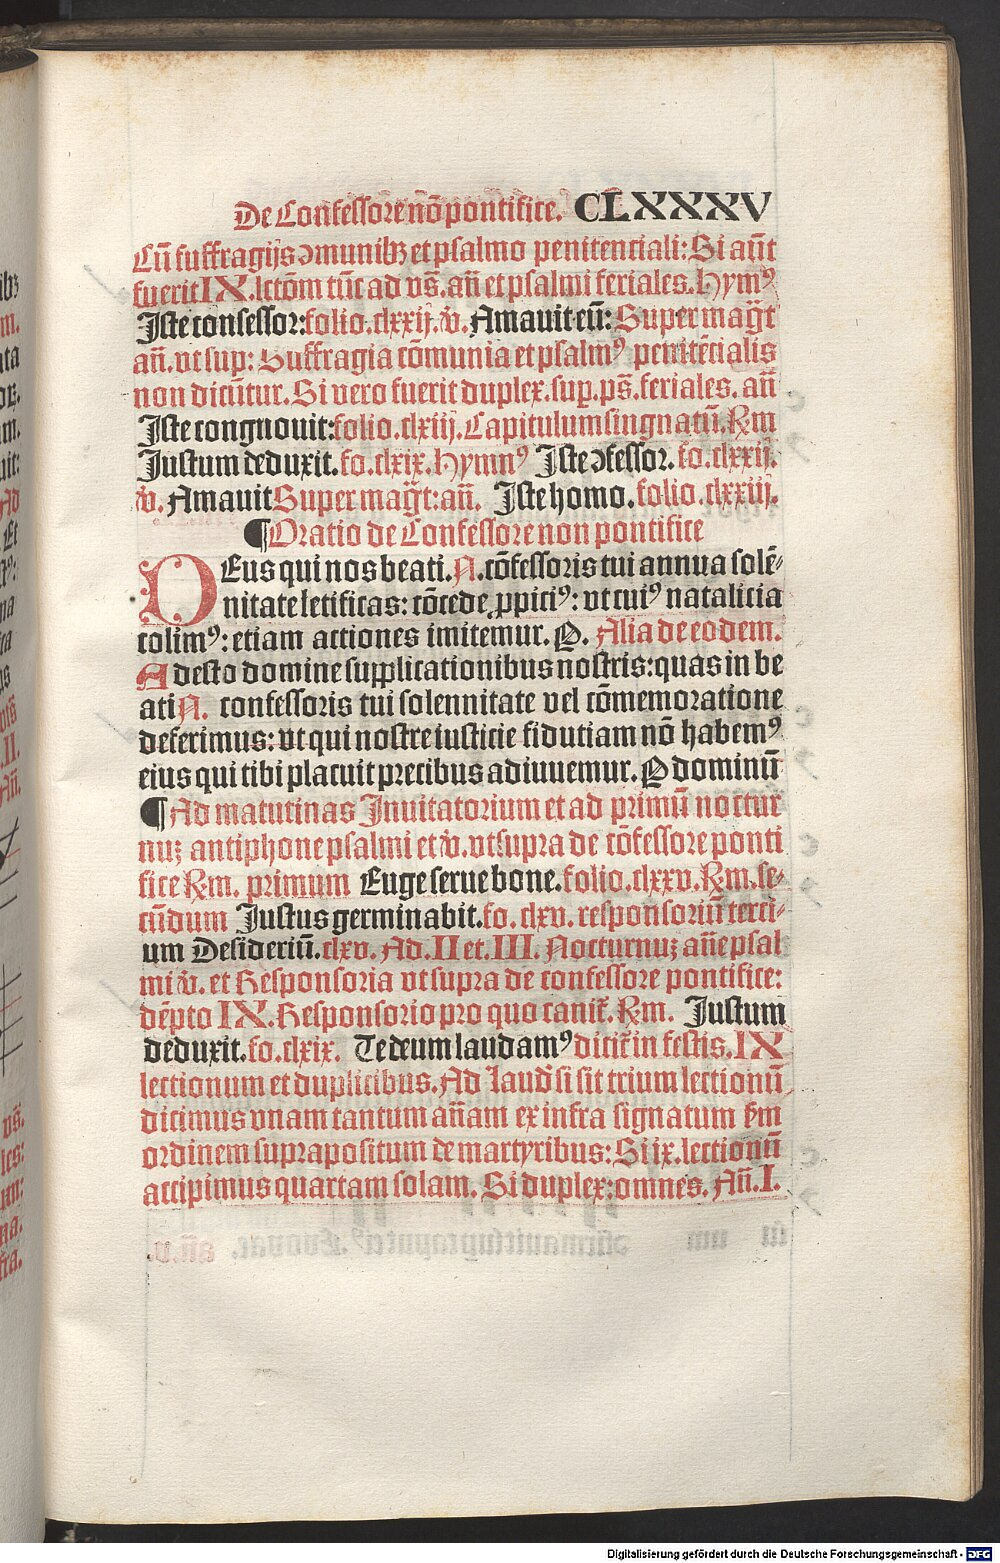 De Confessore nō pontifice. CLXXXXV
Cū suffragijs ↄmunibꝫ et psalmo penitentiali: Si aūt
fuerit IX. lctōm tūc ad vs̄. an̄ et psalmi feriales. Hymꝰ
Iste confessor: folio. clxxij. v̄. Amauit eū: Super maḡt
an̄. vt sup: Suffragia cōmunia et psalmꝰ penitētialis
non dicūtur. Si vero fuerit duplex. sup. ps̄. feriales. an̄
Iste congnouit: folio. clxiij. Capitulum singnatū. Rm
Iustum deduxit. fo. clxix. Hymnꝰ Iste ↄfessor. fo. clxxij.
v̄. Amauit Super maḡt: an̄. Iste homo. folio. clxxiij.
¶ Oratio de Confessore non pontifice
DEus qui nos beati. N. cōfessoris tui annua solē-
nitate letificas: cōcede ꝓpiciꝰ: vt cuiꝰ natalicia
colimꝰ: etiam actiones imitemur. P. Alia de eodem.
Adesto domine supplicationibus nostris: quas in be
ati N. confessoris tui solennitate vel cōmemoratione
deferimus: vt qui nostre iusticie fidutiam nō habemꝰ
eius qui tibi placuit precibus adiuuemur. P dominū
¶ Ad matutinas Inuitatorium et ad primū noctur
nuꝫ antiphone psalmi et v̄. vt supra de cōfessore ponti
fice Rm. primum Euge serue bone. folio. clxxv. Rm. se-
cūdum Iustus germinabit. fo. clxv. responsoriū terci-
um Desideriū. clxv. Ad. II et. III. Nocturnuꝫ an̄e psal
mi v̄. et Responsoria vt supra de confessore pontifice:
dēpto IX. Responsorio pro quo canit̄. Rm. Iustum
deduxit. fo. clxix. Te deum laudamꝰ dicit̄ in festis. IX
lectionum et duplicibus. Ad laud̄ si sit trium lectionū
dicimus vnam tantum an̄am ex infra signatum s̄m
ordinem suprapositum de martyribus: Si ix. lectionū
accipimus quartam solam. Si duplex: omnes. An̄. I.
Digitalisierung gefördert durch die Deutsche Forschungsgemeinschaft - DFG